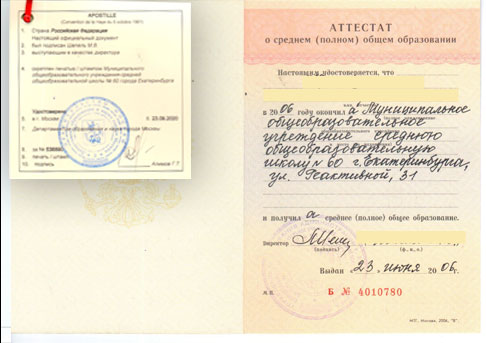 APOSTILLE
(Convention de la Haye du 5 octobre 1961)
1. Страна Российская Федерация
Настоящий официальный документ
2. был подписан Шепель М.В.
3. выступающим в качестве директора
4. скреплен печатью / штампом Муниципального
общеобразовательного учреждения-средней
общеобразовательной школы № 60 города Екатеринбурга
Удостоверено
5. в г. Москва 6. 23.09.2020
7. Департамент образования и науки города Москвы
8. за №
9. печать / штамп
10. Подпись
АТТЕСТАТ
о среднем (полном) общем образовании
Настоящим удостоверяется, что
в 2006 году окончил а Муниципальное
общеобразовательное
учреждение среднюю
общеобразовательную
школу № 60 г. Екатеринбурга,
ул. Реактивной, 31
и получил а среднее (полное) общее образование.
Директор
(подпись) (ф., и., о.)
Выдан « 23 » июня 2006 г.
М.П. Б № 4010780